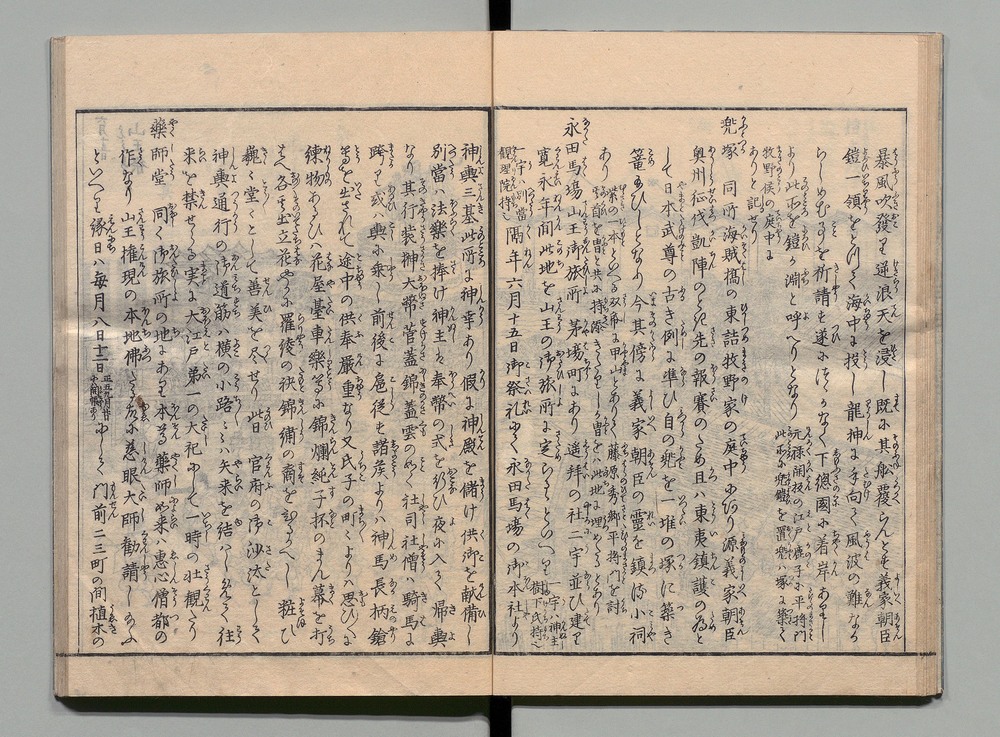 暴風吹發り逆浪天を浸し既に其船覆らんとす義家朝臣
鎧一領をとつて海中に投し龍神に手向て風波の難なか
らしめむことを祈請し遂につゝがなく下總國に着岸ありし
より此所を鎧が淵と呼へりとなん 元禄開板の江戸鹿子に平将門
此所に兜鎧を置兜塚に築く
牧野侯の庭中に
ありと記せり
兜塚 同所海賊橋の東詰牧野家の庭中にあり源義家朝臣
奥州征伐凱陣のとき先の報賽のため且ハ東夷鎮護の為と
して日本武尊の古き例に準ひ自の兜を一堆の塚に築き
篭め給ひしとなり今其傍に義家朝臣の霊を鎮る小祠
あり
藤原秀郷平将門を討
其首を冑と共に持添
永田馬場山王御旅所 茅場町にあり遥拜の社二宇並ひ建り
一宇ハ神主
樹下氏持
一宇ハ別當
観理院持
寛永年間此地を山王の御旅所に定らるゝといへり
隔年六月十五日御祭礼にて永田馬場の御本社より
神輿三基此所に神幸あり假に神殿を儲け供御を献備し
別當ハ法樂を捧け神主ハ奉幣の式を行ひ夜に入て帰輿
なり其行装榊大幣菅蓋錦蓋雲のめく社司社僧ハ騎馬に
跨り或ハ輿に乗し前後に扈従を諸侯よりハ神馬長柄鎗
等を出されて途中の供奉嚴重なり又氏子の町々よりハ思ひ〱に
練物あるひハ花屋臺車樂等に錦爛純子杯のまん幕を打
はへ各出立花やかに羅綾の袂錦繍の裔をひるかへし粧ひ
巍々堂々として善美を尽せり此日官府の御沙汰として
神輿通行の御道筋ハ横の小路〱ハ矢来を結ハしめられて往
来を禁せらる実に大江戸第一の大祀にして一時の壮観たり
藥師堂 同く御旅所の地にあり本尊藥師如来ハ恵心僧都の
作なり山王権現の本地佛たる故に慈眼大師勧請し給ふ
といへり縁日ハ毎月八日十二日にして門前二三町の間植木の